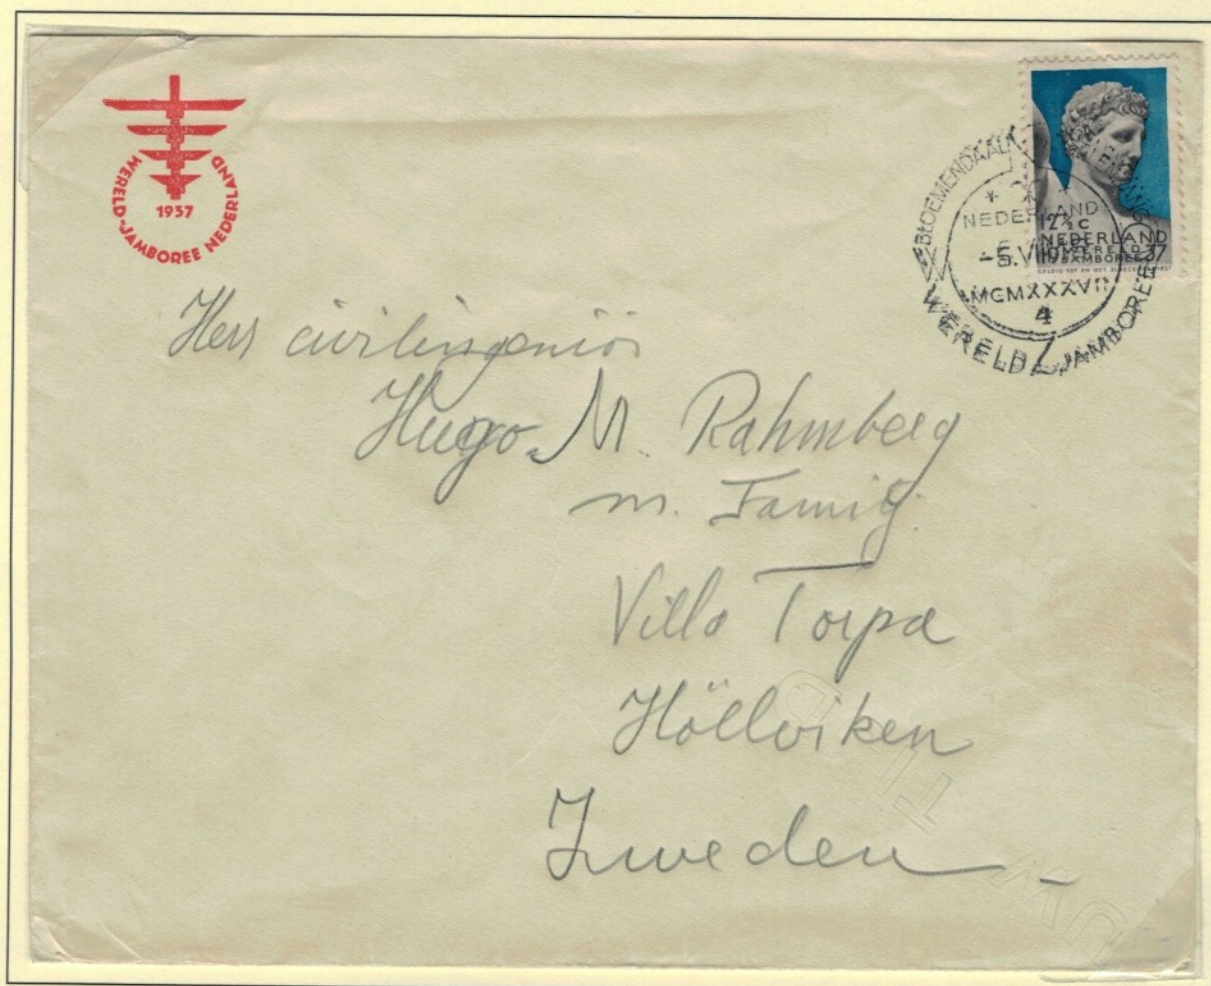 WERELD-JAMBOREE NEDERLAND
1937
BLOEMENDAAL
NEDERLAND
-5.VIII
MCMXXXVII
4
WERELD JAMBOREE
12½ C
NEDERLAND
WERELD
JAMBOREE 37
Herr civilingeniör
Hugo M. Rahmberg
m. Familj.
Villa Torpa
Höllviken
Zweden